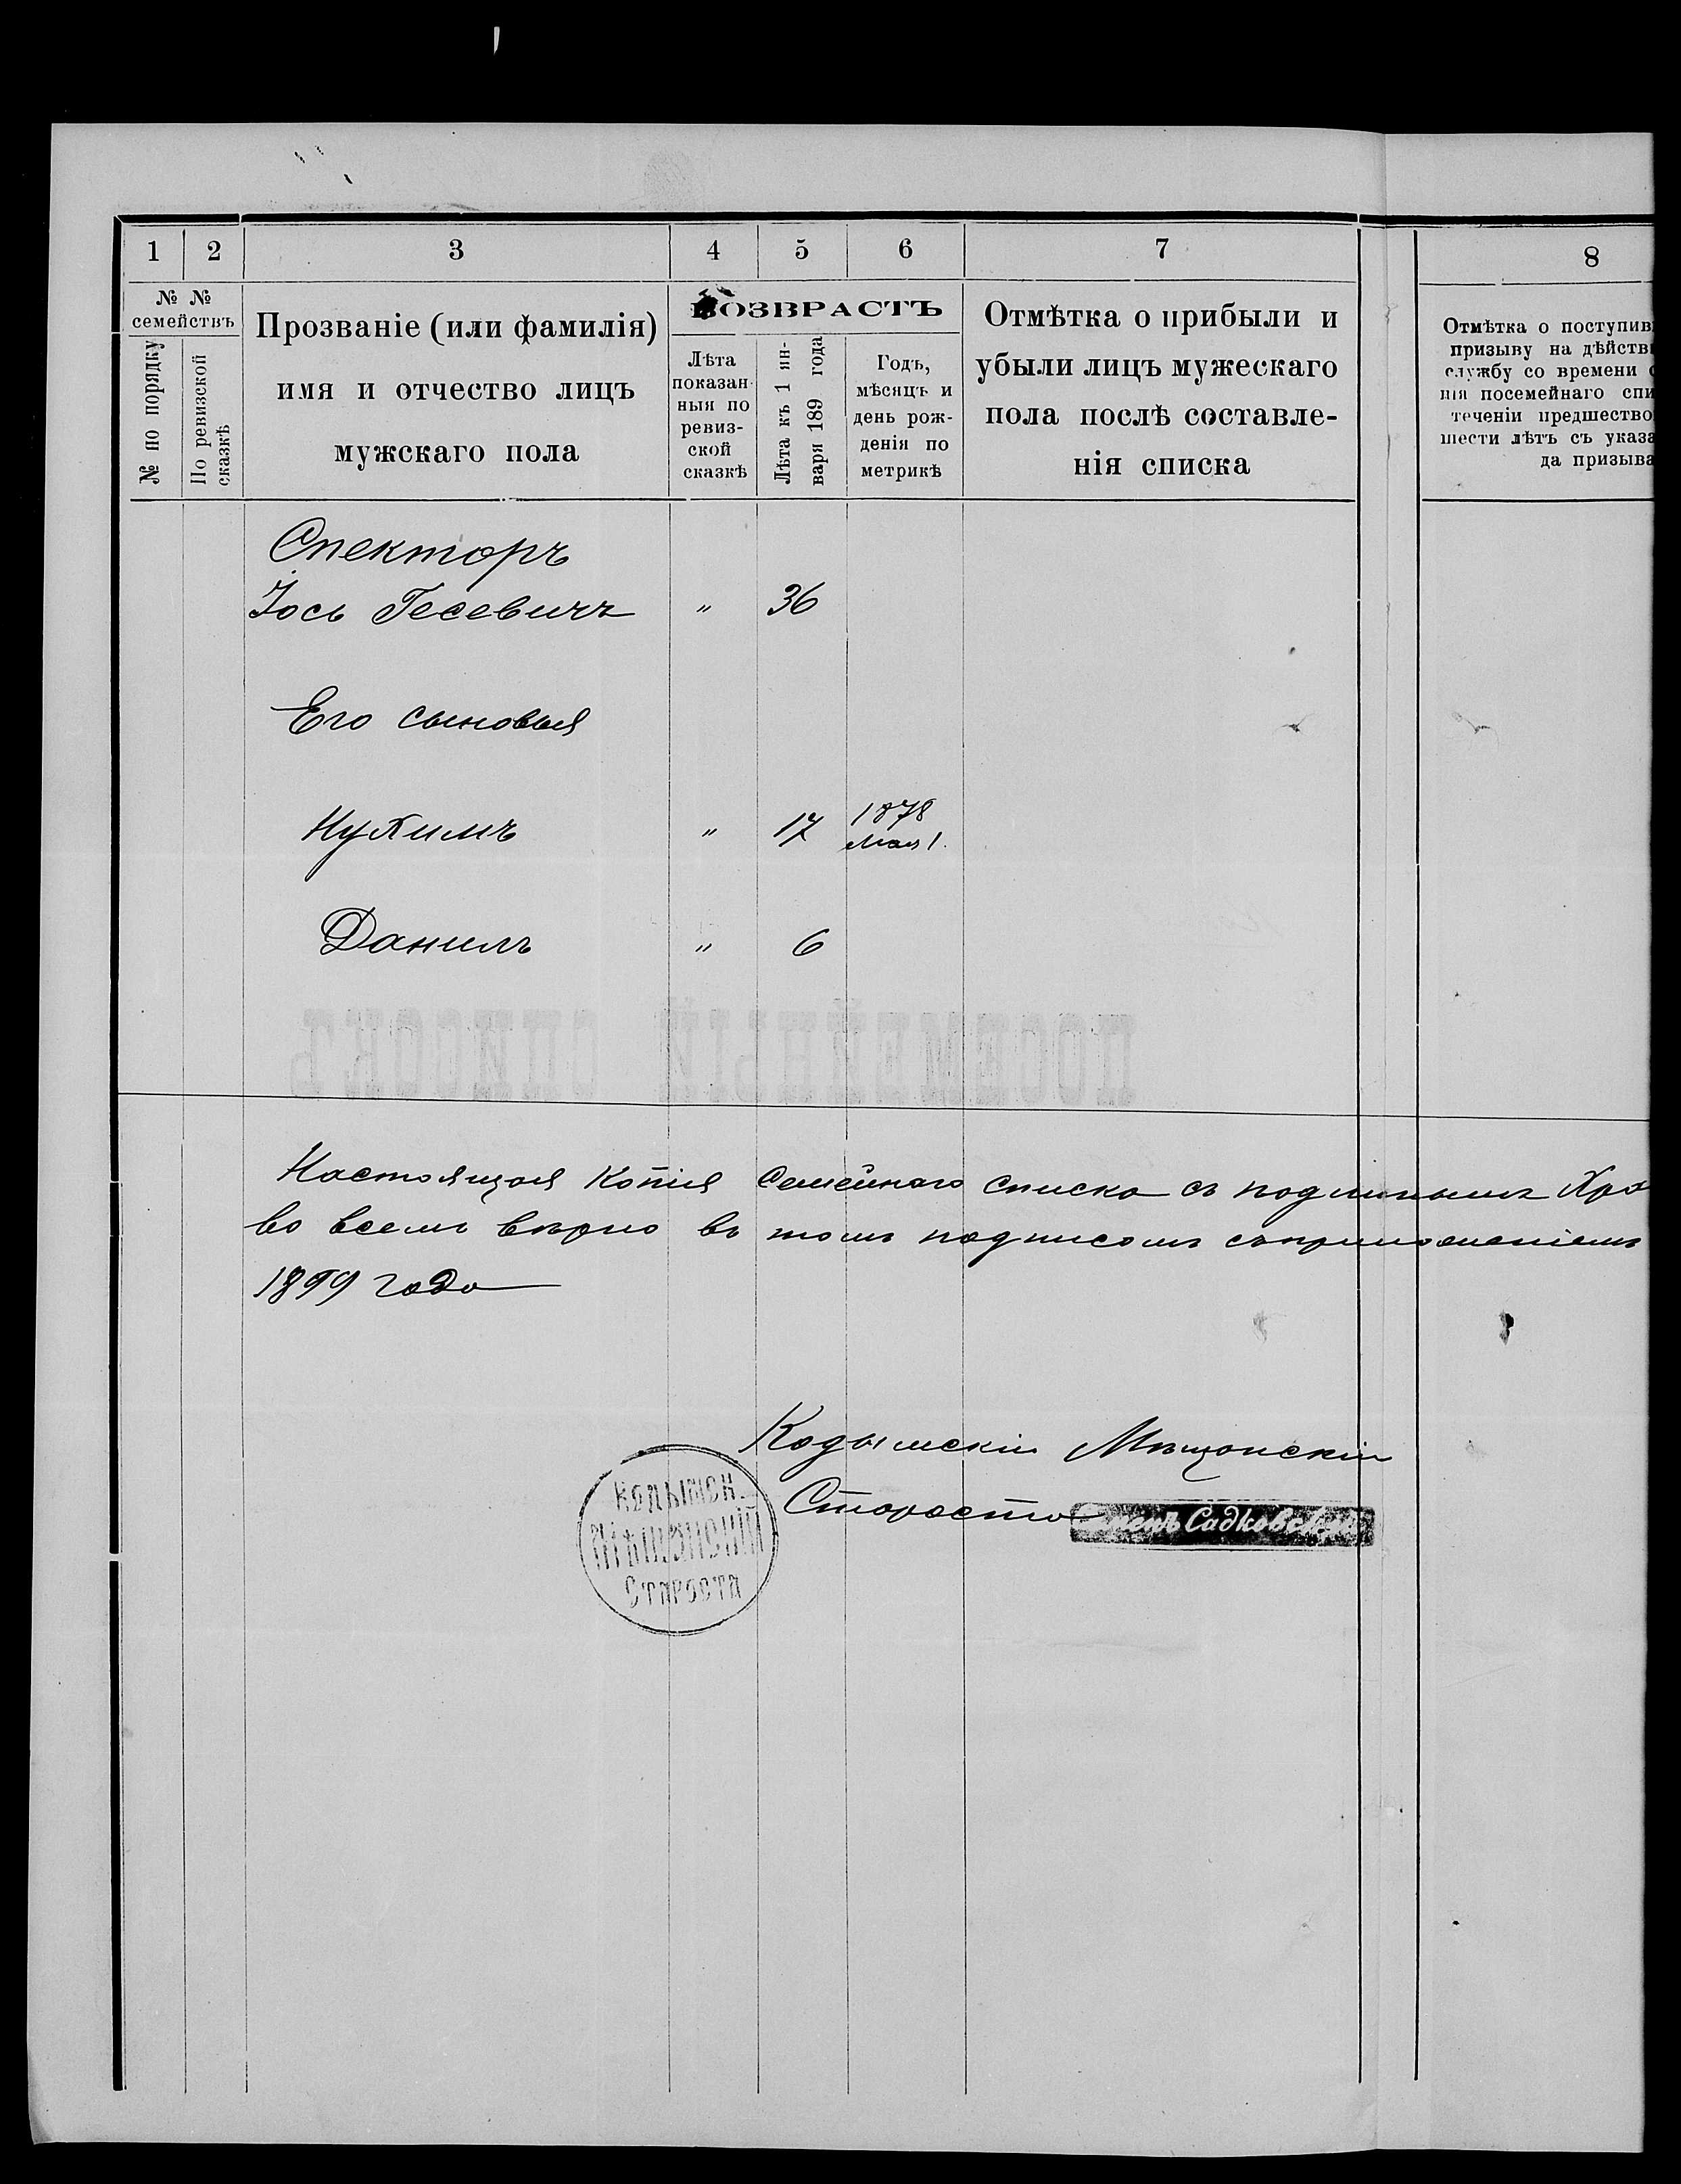 1 2 3 4 5 6 7 8
№ № семействъ
№ по порядку
По ревизской сказкѣ
Прозваніе (или фамилія)
имя и отчество лицъ
мужскаго пола
ВОЗВРАСТЪ
Лѣта
показан-
ныя по
ревиз-
ской
сказкѣ
Лѣта къ 1 ян-
варя 189 года
Годъ,
мѣсяцъ и
день рож-
денія по
метрикѣ
Отмѣтка о прибыли и
убыли лицъ мужескаго
пола послѣ составле-
нія списка
Отмѣтка о поступив
призыву на дѣйств
службу со времени с
нія посемейнаго спи
теченіи предшество
шести лѣтъ съ указа
да призыва
Спекторъ
Іось Гесевичъ " 36
Его сыновья
Нухимъ " 17 1878
Мая 1.
Данилъ " 6
ПОСЕМЕЙНЫЙ СПИСОКЪ
Настоящая копія Семейнаго списка съ подлиннымъ Хра
во всемъ вѣрно въ томъ подписомъ съ приложеніемъ
1899 года
Кодымскій Мѣщанскій
Староста Семенъ Садковскій
КОДЫМСК.
МѢЩАНСКІЙ
СТАРОСТА